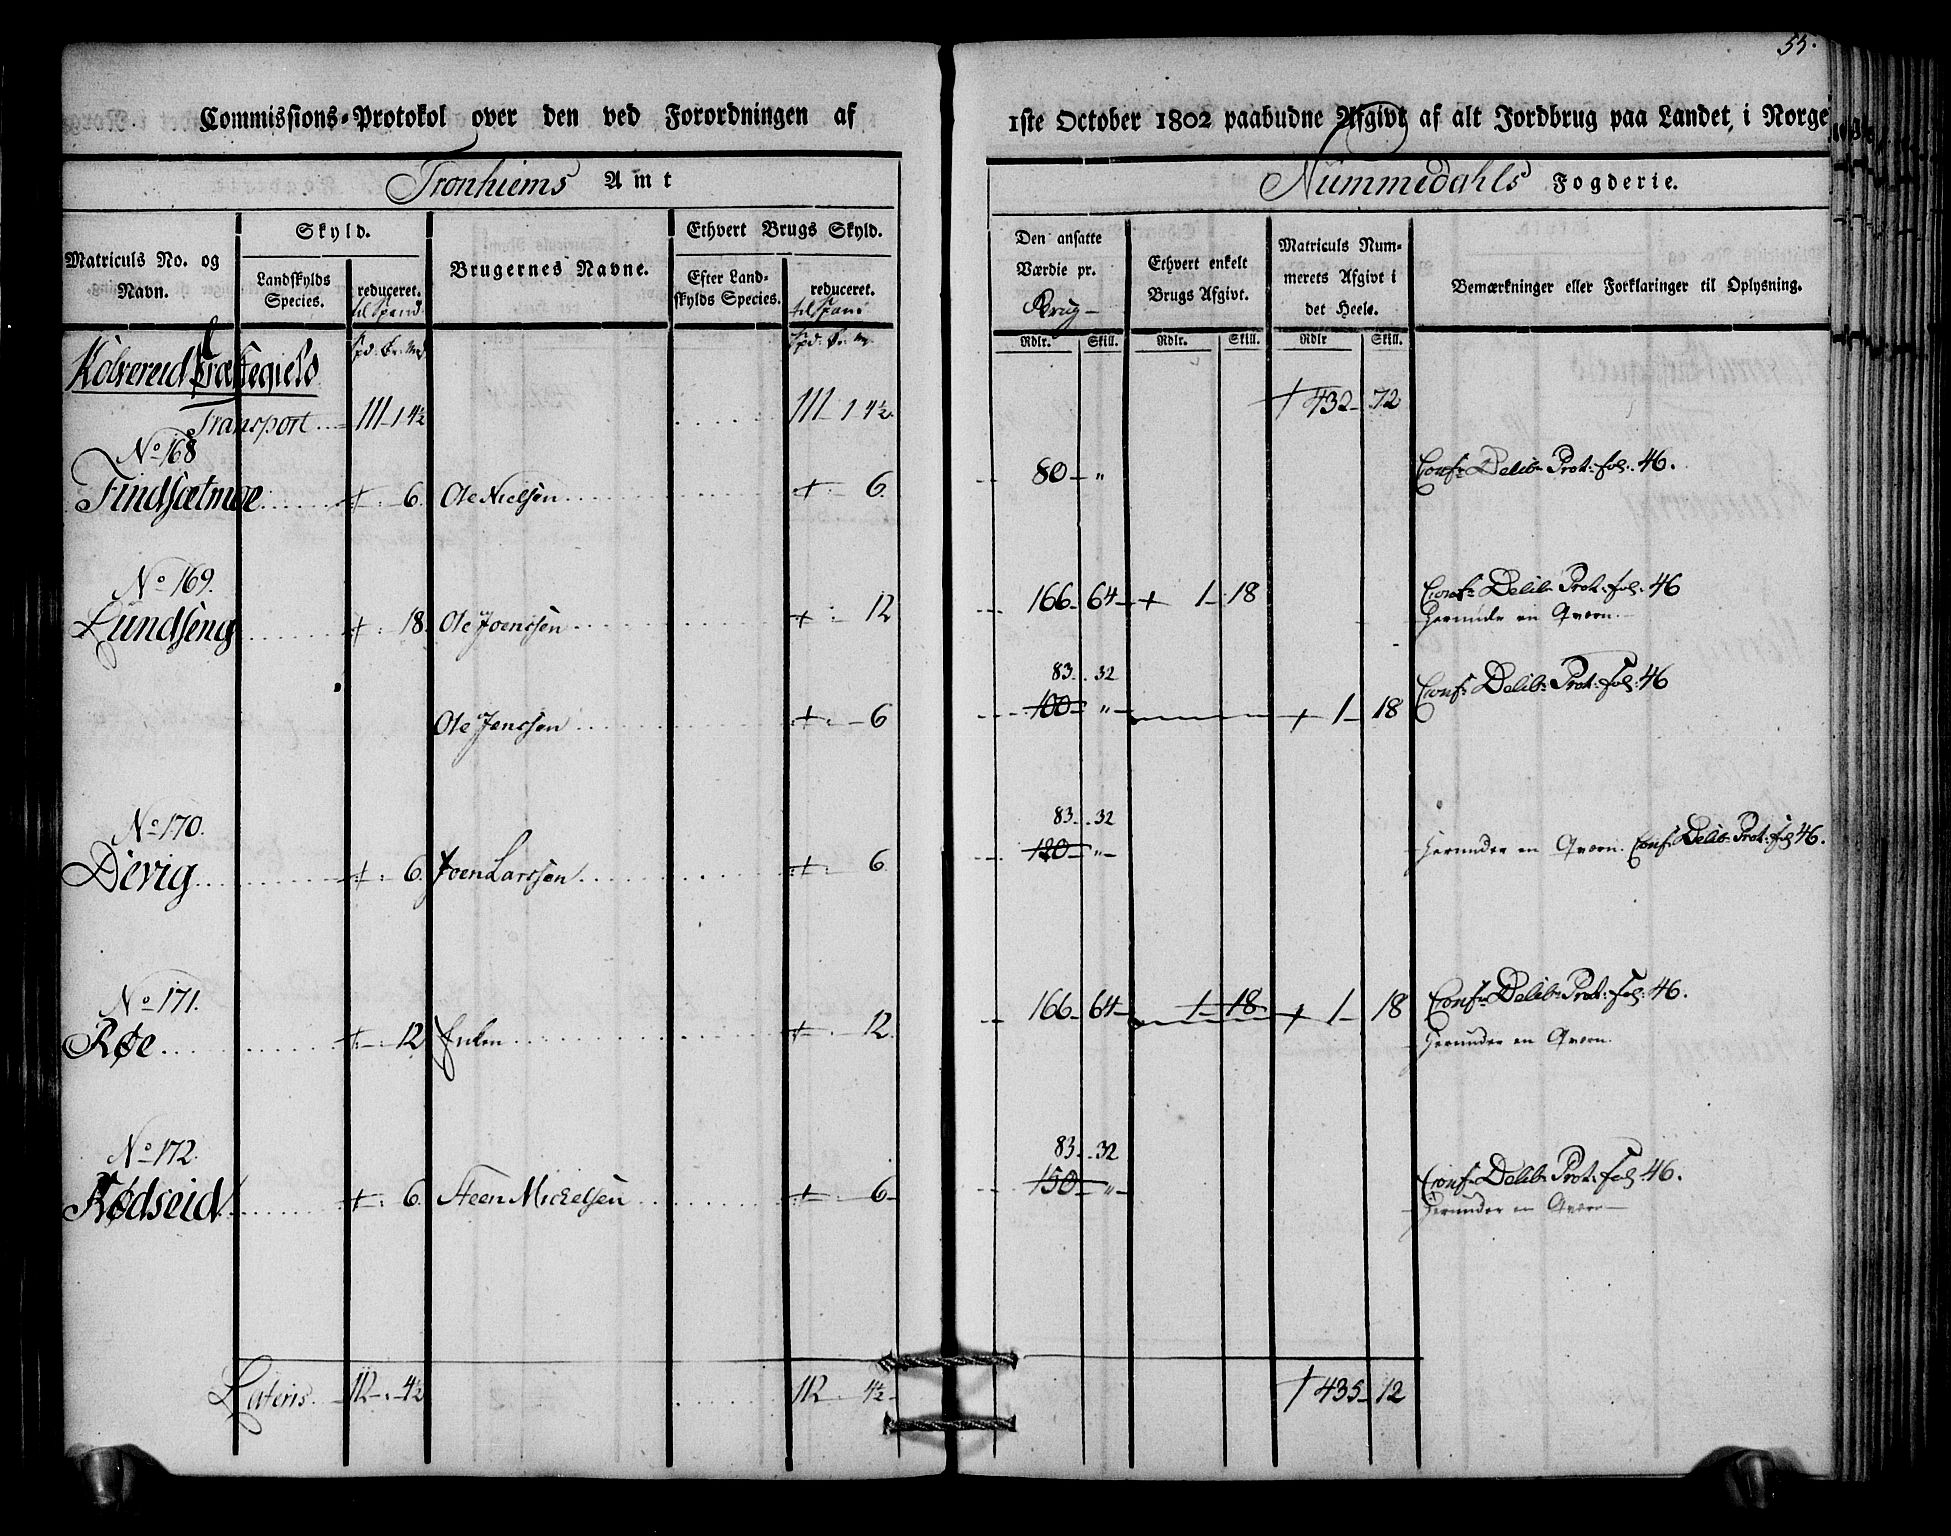 55.
Commissions-Protokol over den ved Forordningen af 1ste October 1802 paabudne Afgivt af alt Jordbrug paa Landet, i Norge
Tronhiems Amt Nummedahls Fogderie.
Matriculs No. og Navn.
Skyld.
Landskylds Species.
reduceret.
til Spand
Brugernes Navne.
Ethvert Brugs Skyld.
Efter Landskylds Species.
reduceret.
til Span:
Den ansatte Værdie pr.
Brug
Ethvert enkelt Brugs Afgivt.
Matriculs Nummerets Afgivt i det Heele.
Bemærkninger eller Forklaringer til Oplysning.
Rdlr. Skill. Rdlr. Skill. Rdlr Skill.
Kolvereid Præstegield
Transport 111 - 1 4½ 111 - 1 4½ 432 - 72
No 168
Findsætmoe 6. Ole Nielsen 6. 80 - " Conf: Delib: Prot: fol: 46.
No 169.
Lundseng 18. Ole Joenssen 12 166 - 64 1 - 18 Conf: Delib: Prot: fol: 46
Herunder en Qværn.
83 - 32
Ole Jenssen 6 100 - " 1 - 18 Conf: Delib: Prot: fol: 46
No 170. 83 - 32
Devig 6. Joen Larssen 6. 120 - " Herunder en Qværn. Conf: Delib: Prot: fol 46.
No 171.
Røe 12 Enken 12. 166 - 64 1 - 18 1 - 18 Conf: Delib: Prot: fol: 46.
Herunder en Qværn.
No 172. 83 - 32
Rødseid 6. Steen Michelsen 6 150 - " Conf: Delib: Prot: fol: 46.
Herunder en Qværn
Lateris 112 - 4½ 112 - 4½ 435 - 12